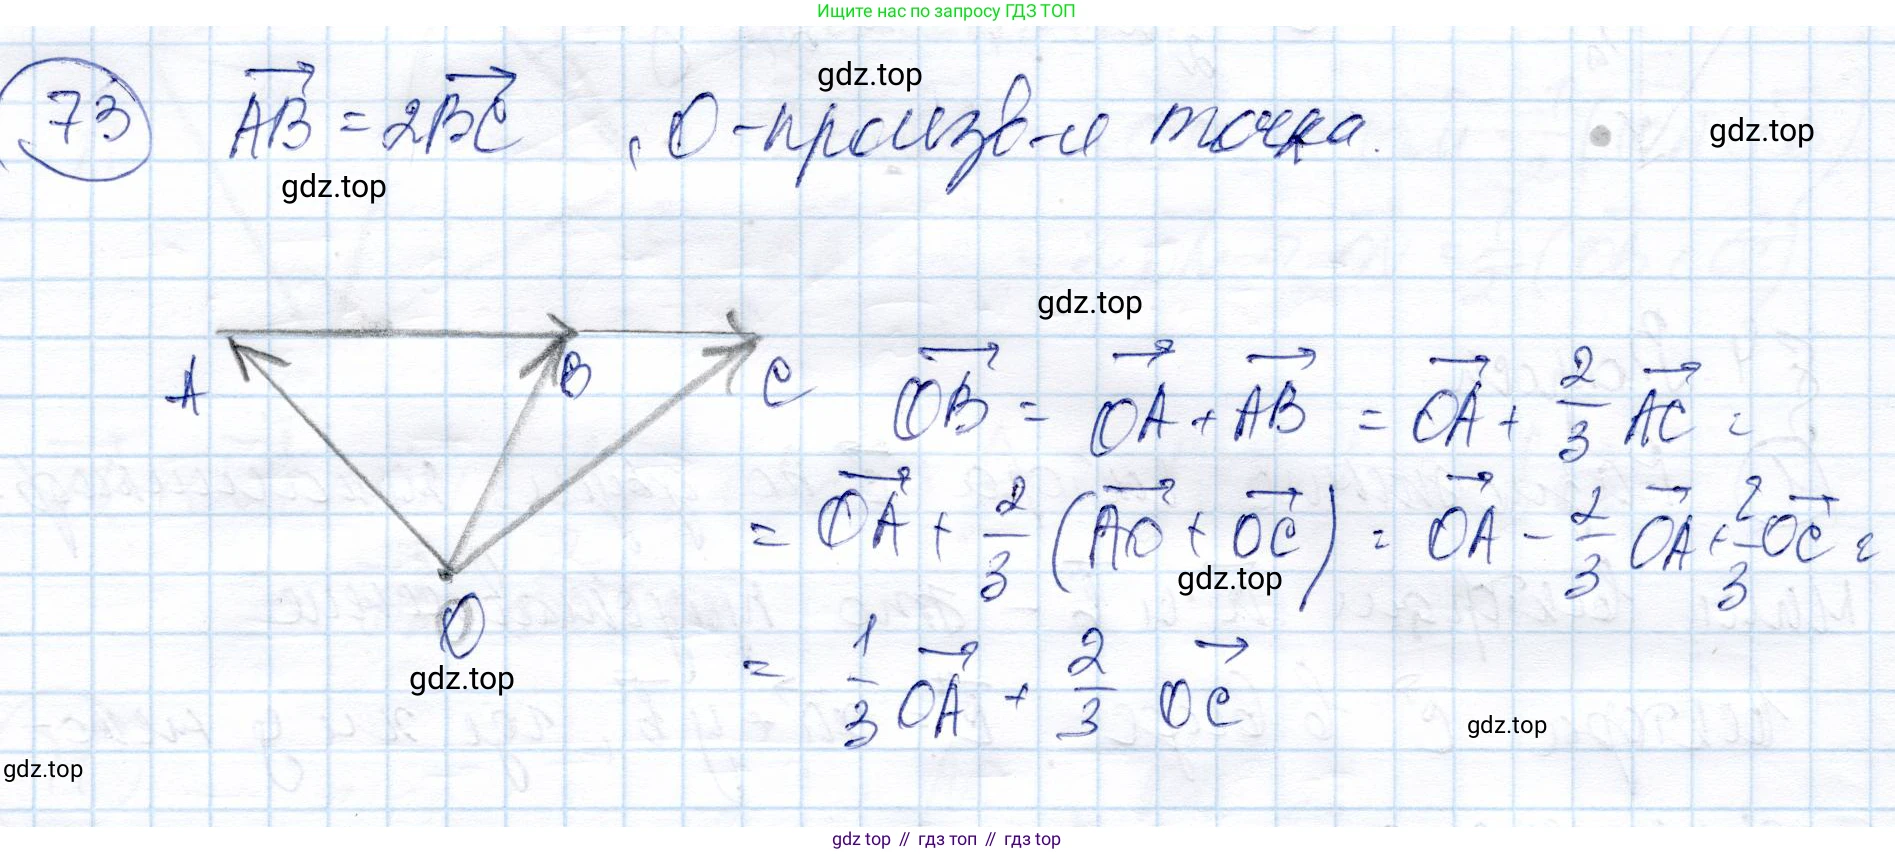 Ищите нас по запросу ГДЗ ТОП
73 AB = 2BC , O - произв-я точка.
gdz.top
gdz.top
gdz.top
gdz.top
A B C
OB = OA + AB = OA + 2/3 AC =
= OA + 2/3 (AO + OC) = OA - 2/3 OA + 2/3 OC =
gdz.top
O
= 1/3 OA + 2/3 OC
gdz.top
gdz.top
gdz.top
gdz top // гдз топ // гдз top